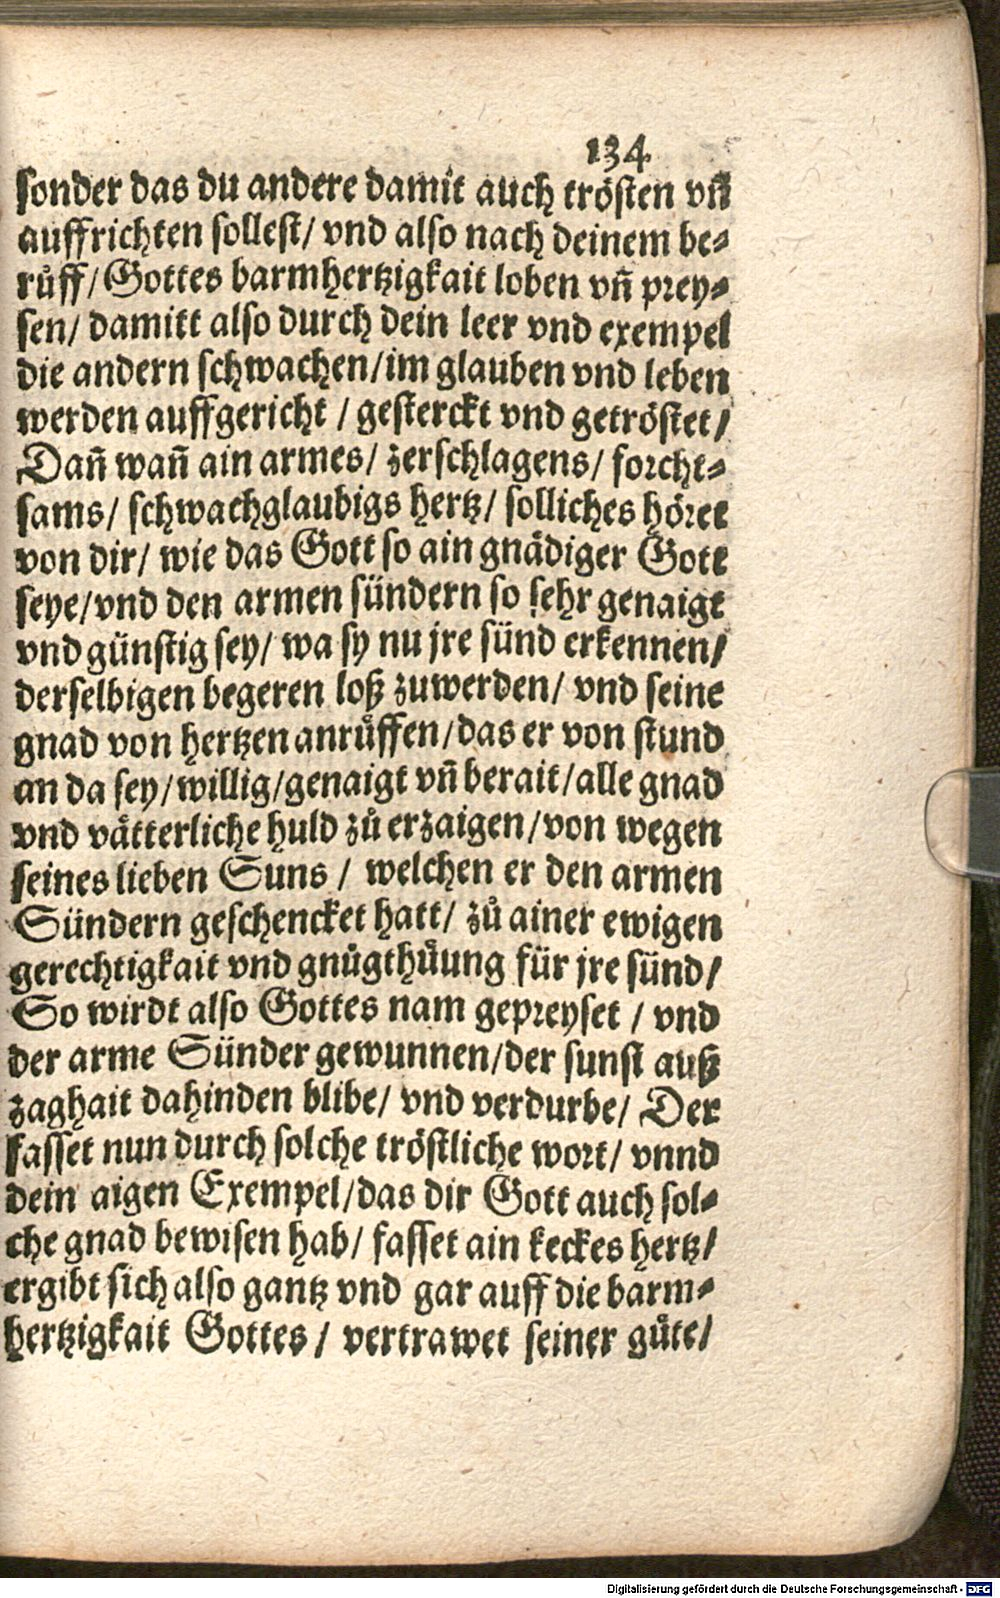 134
sonder das du andere damit auch trösten vn̄
auffrichten sollest/ vnd also nach deinem be⸗
rüff/ Gottes barmhertzigkait loben vn̄ prey⸗
sen/ damitt also durch dein leer vnd exempel
die andern schwachen/ im glauben vnd leben
werden auffgericht / gesterckt vnd getröstet/
Dan̄ wan̄ ain armes/ zerschlagens/ forcht⸗
sams/ schwachglaubigs hertz/ solliches höret
von dir/ wie das Gott so ain gnädiger Gott
seye/ vnd den armen sündern so sehr genaigt
vnd günstig sey/ wa sy nu jre sünd erkennen/
derselbigen begeren loß zuwerden/ vnd seine
gnad von hertzen anrüffen/ das er von stund
an da sey/ willig/ genaigt vn̄ berait/ alle gnad
vnd vätterliche huld zů erzaigen/ von wegen
seines lieben Suns / welchen er den armen
Sündern geschencket hatt/ zů ainer ewigen
gerechtigkait vnd gnůgthůung für jre sünd/
So wirdt also Gottes nam gepreyset / vnd
der arme Sünder gewunnen/ der sunst auß
zaghait dahinden blibe/ vnd verdurbe/ Der
fasset nun durch solche tröstliche wort/ vnnd
dein aigen Exempel/ das dir Gott auch sol⸗
che gnad bewisen hab/ fasset ain keckes hertz/
ergibt sich also gantz vnd gar auff die barm⸗
hertzigkait Gottes / vertrawet seiner güte/
Digitalisierung gefördert durch die Deutsche Forschungsgemeinschaft - DFG